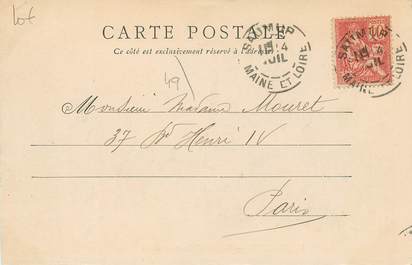 Lot
CARTE POSTALE
Ce côté est exclusivement réservé à l'adresse
SAUMUR
4
JUIL
MAINE ET LOIRE
SAUMUR
4
JUIL
MAINE ET LOIRE
49
Monsieur Madame Mouret
37 Bd Henri IV
Paris